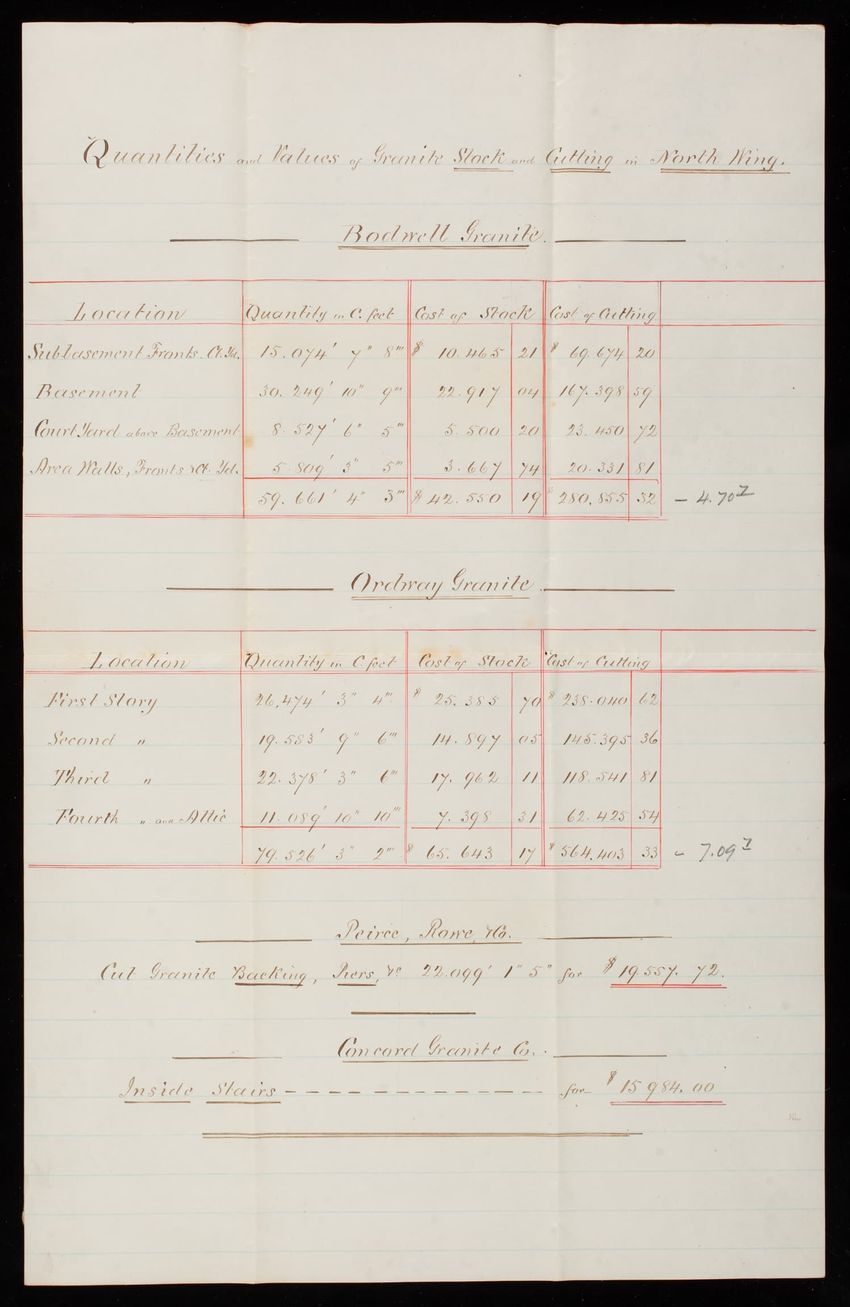 Quantities and Values of Granite Stock and Cutting in North Wing.
Bodwell Granite.
Location Quantity in C. feet Cost of Stock Cost of Cutting
Subbasement Fronts. Ct. Yd. 15.074' 7" 8"' $ 10.465 21 $ 69.674 20
Basement 30.249' 10" 9"' 22.917 04 167.398 59
Court Yard above Basement 8.527' 6" 5"' 5.500 20 23.450 72
Area Walls, Fronts & Ct. Yd. 5.809' 3" 5"' 3.667 74 20.331 81
59.661' 4" 3"' $ 42.550 19 $ 280,855 32 – 4.70
Ordway Granite.
Location Quantity in C. feet Cost of Stock Cost of Cutting
First Story 26,474' 3" 4"' $ 25.385 70 $ 238.040 62
Second " 19.583' 9" 6"' 14.897 05 145.395 36
Third " 22.378' 3" 6"' 17.962 11 118.541 81
Fourth " and Attic 11.089' 10" 10"' 7.398 31 62.425 54
79.526' 3" 2"' $ 65.643 17 $ 564,403 33 – 7.09
Peirce, Rowe, & Co.
Cut Granite Backing, Piers, &c 22.099' 1" 5" for $ 19.557.72.
Concord Granite Co.
Inside Stairs – – – – – – – – – – – – for $ 15 984.00